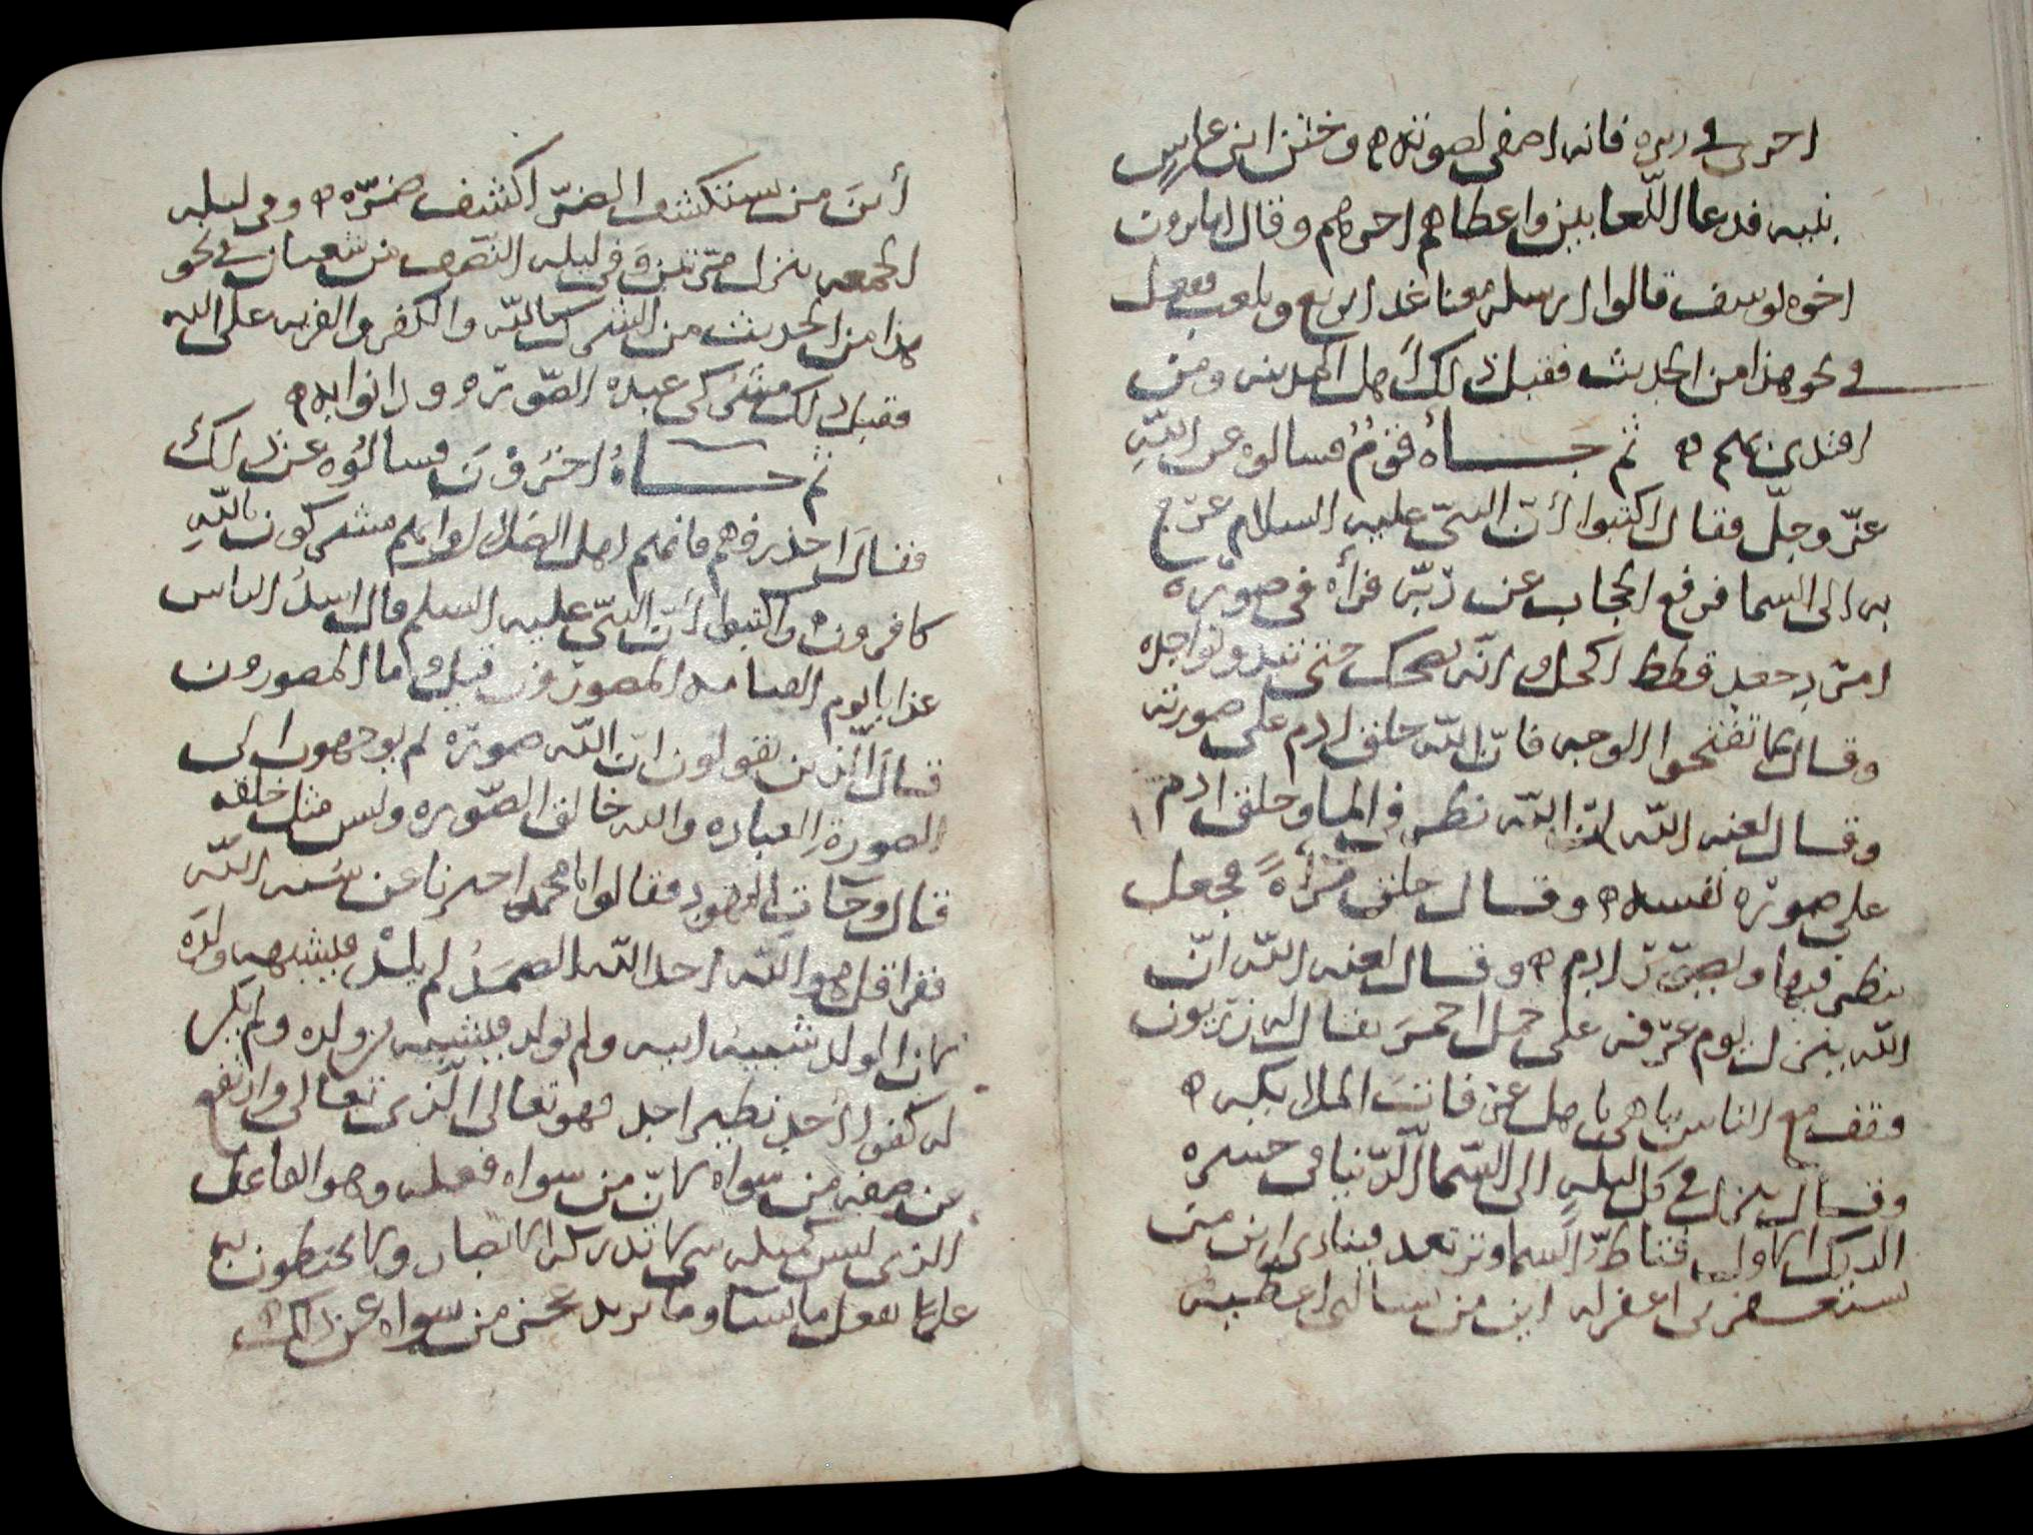 احرى في دبره فانه اصفى لصوته ه وختن ابن عباس
بنيه فدعا اللعابين واعطاهم اجرهم وقال اما ترون
اخوه يوسف قالوا ارسله معنا غدا يرتع ويلعب ففعل
في نحو هذا من الحديث فقبل ذلك اهل المدينه ومن
اقتدى بهم ه ثم جــاه قوم فسالوه عن الله
عز وجل فقال اكتبوا أن النبي عليه السلام عرج
به الى السما فرفع الحجاب عن ربه فرأه في صورة
امرد جعد قطط اكحل وانه يضحك حتى تبدو نواجذه
وقال لا تقبحوا الوجه فان الله خلق ادم على صورته
وقال لعنه الله ان الله نظر في الما وخلق ادم
على صوره نفسه ه وقال خلق مرأة فجعل
ينظر فيها ويصور ادم ه وقال لعنه الله ان
الله ينزل يوم عرفه على جمل احمر يقال له زريون
وقف مع الناس يباهي باهل عرفات الملايكه ه
وقال ينزل في كل ليله الى السما الدنيا في صيره
الديك الاول فتاط السما وترتعد فينادي اين من
يستغفرني اغفر له اين من يسالني اعطيه
أين من يستكشف الضر اكشف ضره ه وفي ليله
الجمعه ينزل مرتين وفي ليله النصف من شعبان في نحو
هذا من الحديث من الشرك بالله والكفر والفريه على الله
فقبل ذلك مشركى عبده الصوره ودانوا به ه
ثم جــاه اخرون فسالوه عن ذلك
فقال احذروهم فانهم اهل الضلال وانهم مشركون بالله
كافرون ه واكتبوا أن النبي عليه السلم قال اشد الناس
عذابا يوم القيامه المصورون قيل وما المصورون
قال الذين يقولون ان الله صوره لم يوجهون الى
الصورة العباده والله خالق الصوره وليس مثل خلقه
قال وجات اليهود فقالوا يا محمد اخبرنا عن نسبه الله
فقرا قل هو الله احد الله الصمد لم يلد فيشبهه ولده
لان الولد شبيه ابيه ولم يولد فيشبه من ولده ولم يكن
له كفوا احد نظير احد فهو تعالى الذي تعالى وارتفع
عن صفه من سواه لان من سواه فعله وهو الفاعل
الذي ليس كمثله شي لا تدركه الابصار ولا يحيطون به
علما يفعل ما يشا وما يريد عجز من سواه عن ذلك